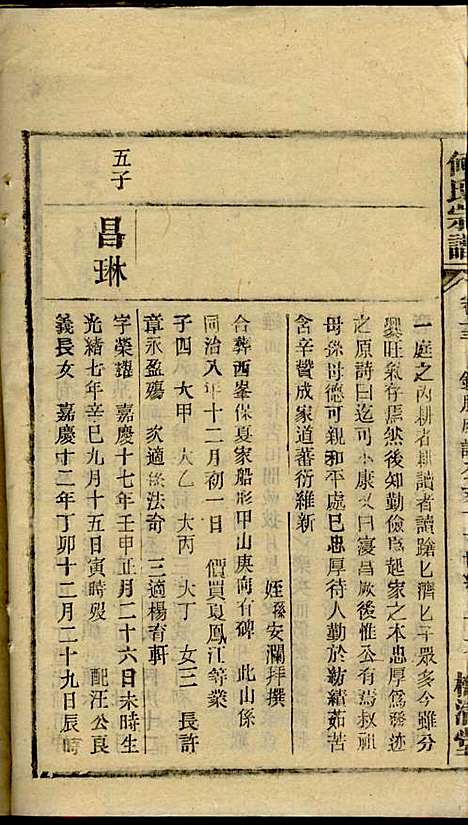 何氏宗譜
一庭之內耕者耕讀者讀蹌匕濟匕子眾多今雖分
爨旺氣存焉然後知勤儉為起家之本忠厚為發迹
之原詩曰迄可小康又曰寖昌厥後惟公有焉叔祖
母孫母德可親和平處己忠厚待人勤於紡績茹苦
含辛贊成家道蕃衍維新
姪孫安瀾拜撰
合葬西峯保夏家船形甲山庚向有碑 此山係
同治八年十二月初一日 價買夏鳳江等業
子四 大甲 大乙 大丙 大丁 女三 長許
章永盈殤 次適徐法奇 三適楊育軒
五子
昌琳
字榮譜 嘉慶十七年壬申正月二十六日未時生
光緒七年辛巳九月十五日寅時歿 配汪公良
義長女 嘉慶十二年丁卯十二月二十九日辰時